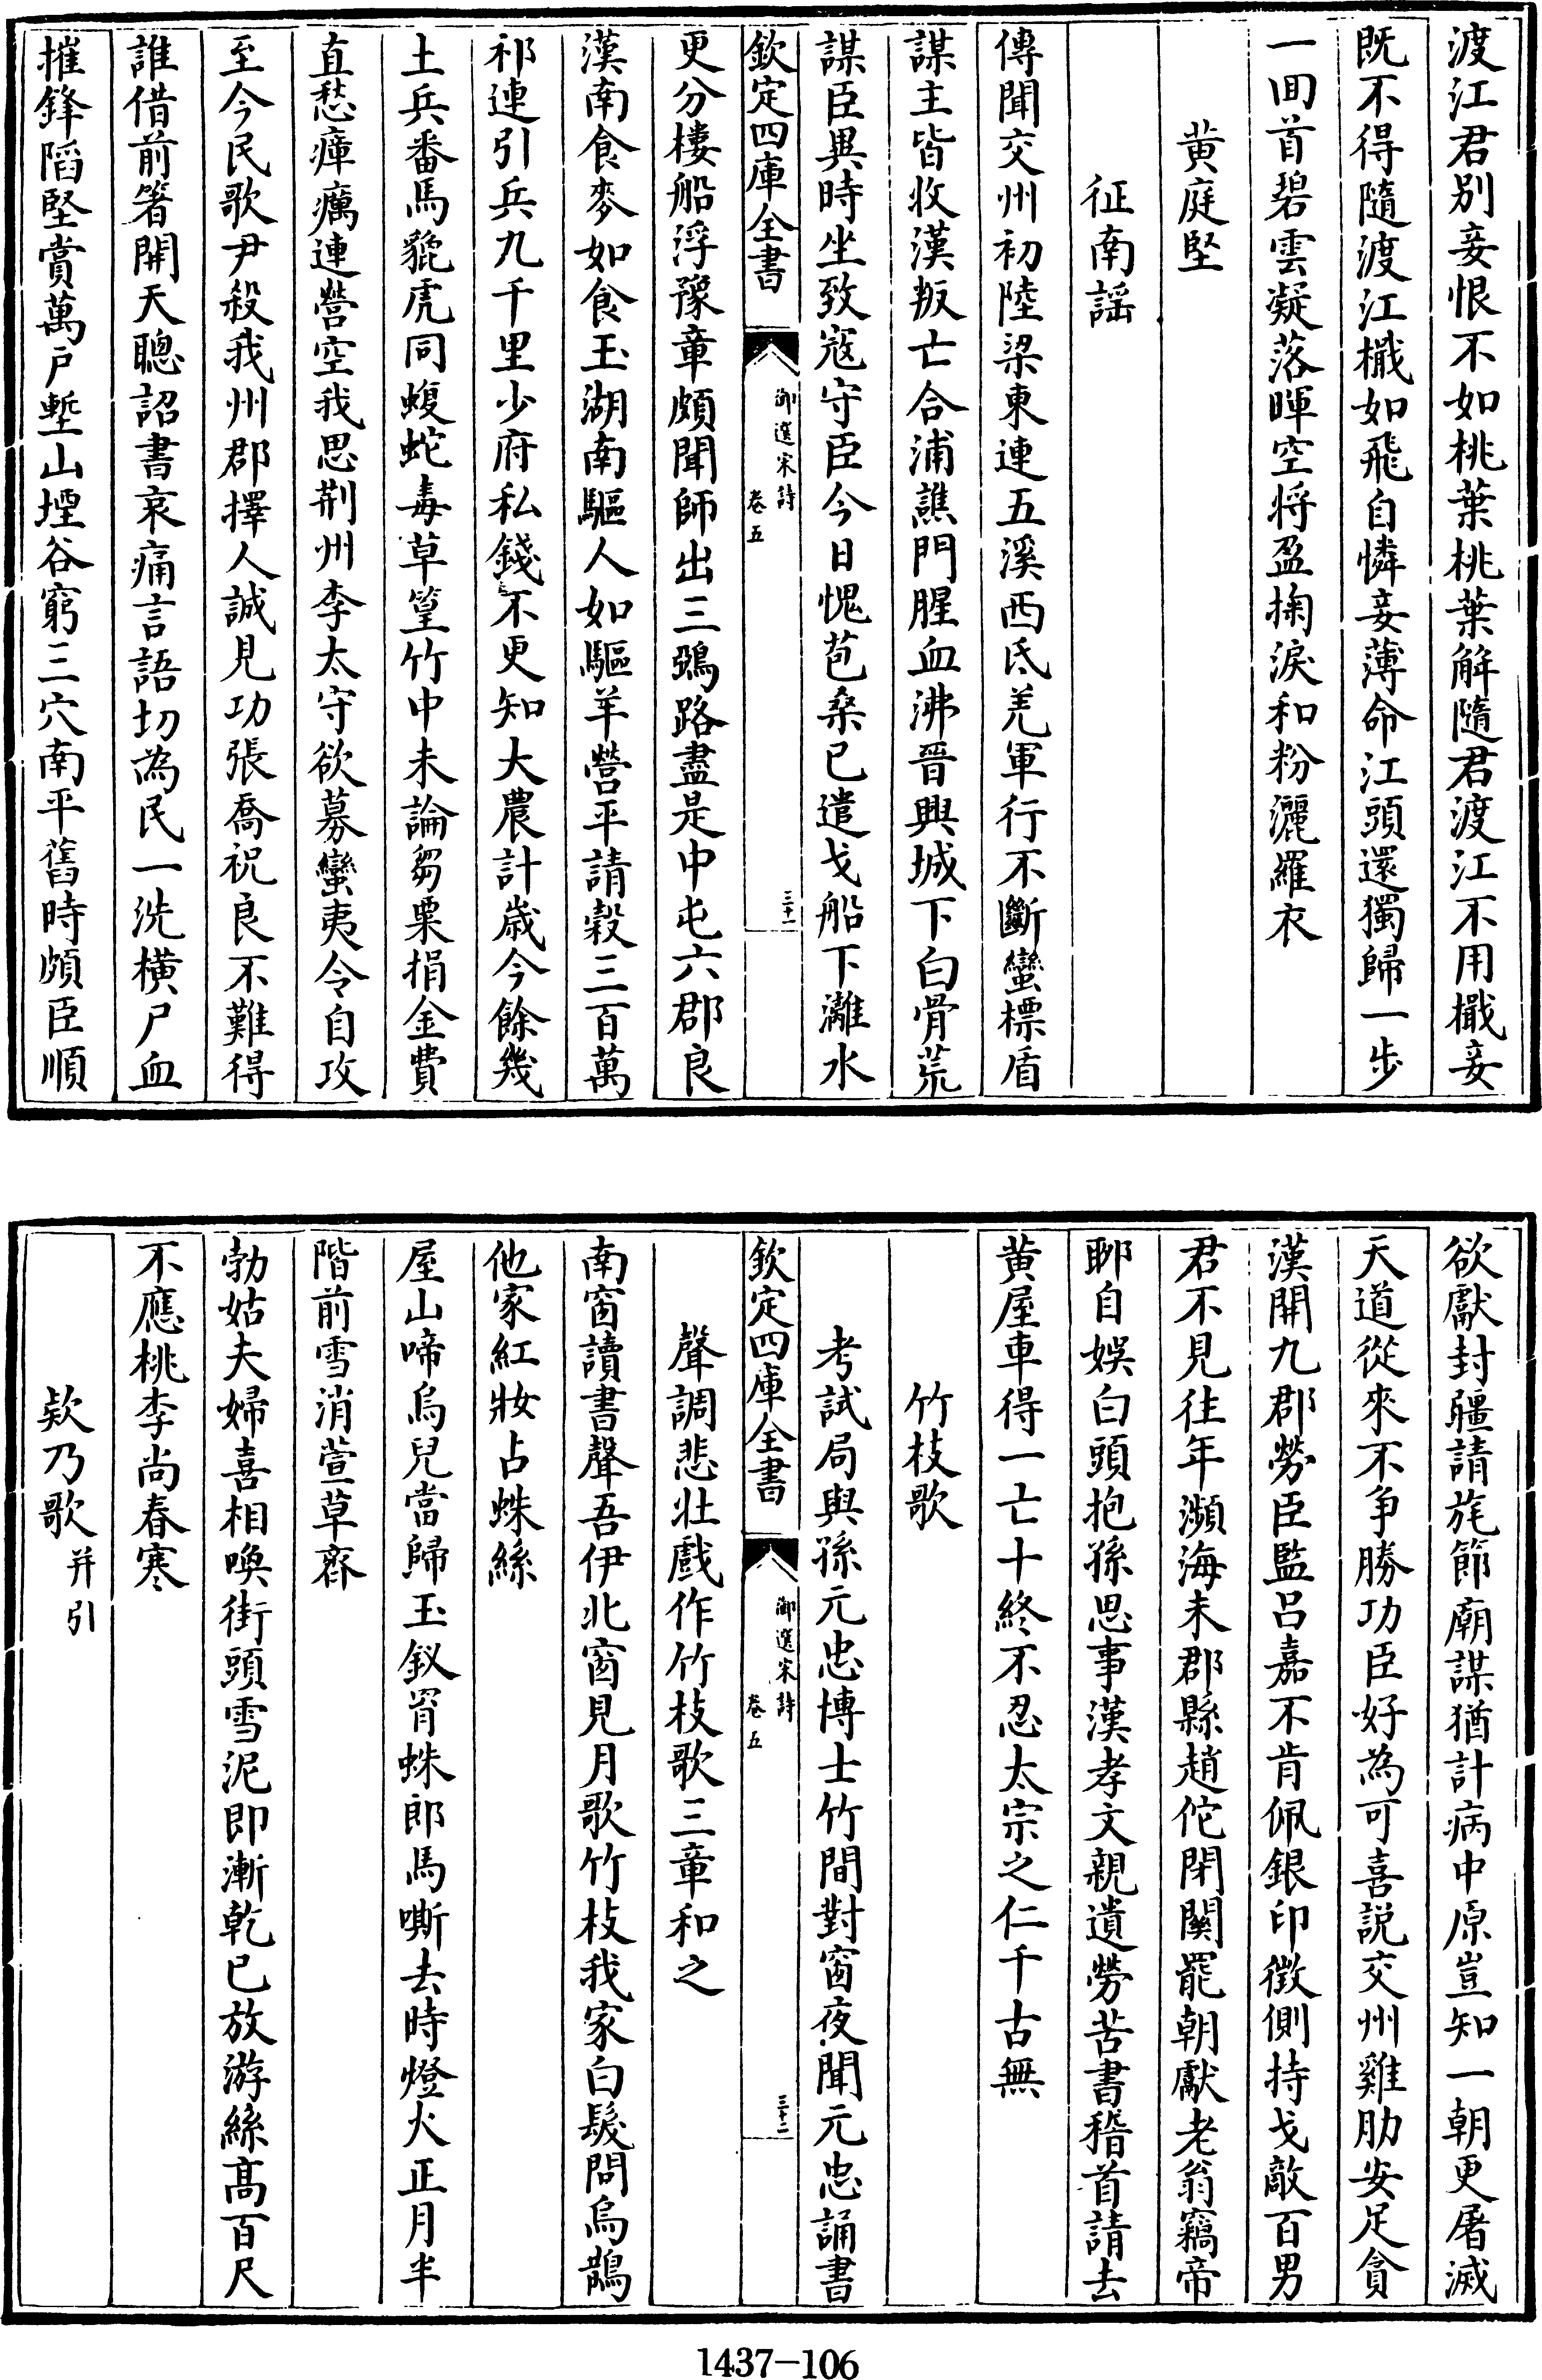 渡江君别妾恨不如桃葉桃葉解隨君渡江不用檝妾
既不得隨渡江檝如飛自憐妾薄命江頭還獨歸一步
一回首碧雲凝落暉空将盈掬淚和粉灑羅衣
黄庭堅
征南謡
傳聞交州初陸梁東連五溪西氐羌軍行不斷蠻標盾
謀主皆收漢叛亡合浦譙門腥血沸晉興城下白骨荒
謀臣異時坐致寇守臣今日愧苞桑已遣戈船下灕水
欽定四庫全書
御選宋詩
卷五
三十一
更分樓船浮豫章頗聞師出三鵶路盡是中屯六郡良
漢南食麥如食玉湖南驅人如驅羊營平請穀三百萬
祁連引兵九千里少府私錢不更知大農計歳今餘幾
土兵番馬貔虎同蝮蛇毒草篁竹中未論芻粟捐金費
直愁瘴癘連營空我思荆州李太守欲募蠻夷令自攻
至今民歌尹殺我州郡擇人誠見功張喬祝良不難得
誰借前箸開天聰詔書哀痛言語切為民一洗横尸血
摧鋒陷堅賞萬戸塹山堙谷窮三穴南平舊時頗臣順
欲獻封疆請旄節廟謀猶計病中原豈知一朝更屠滅
天道從來不争勝功臣好為可喜説交州雞肋安足貪
漢開九郡勞臣監吕嘉不肯佩銀印徴側持戈敵百男
君不見往年瀕海未郡縣趙佗閉關罷朝獻老翁竊帝
聊自娛白頭抱孫思事漢孝文親遺勞苦書稽首請去
黄屋車得一亡十終不忍太宗之仁千古無
竹枝歌
考試局與孫元忠博士竹間對窗夜聞元忠誦書
欽定四庫全書
御選宋詩
卷五
三十二
聲調悲壯戲作竹枝歌三章和之
南窗讀書聲吾伊北窗見月歌竹枝我家白髮問烏鵲
他家紅妝占蛛絲
屋山啼烏兒當歸玉釵罥蛛郎馬嘶去時燈火正月半
階前雪消萱草齊
勃姑夫婦喜相喚街頭雪泥即漸乾已放游絲髙百尺
不應桃李尚春寒
欵乃歌并引
1437-106